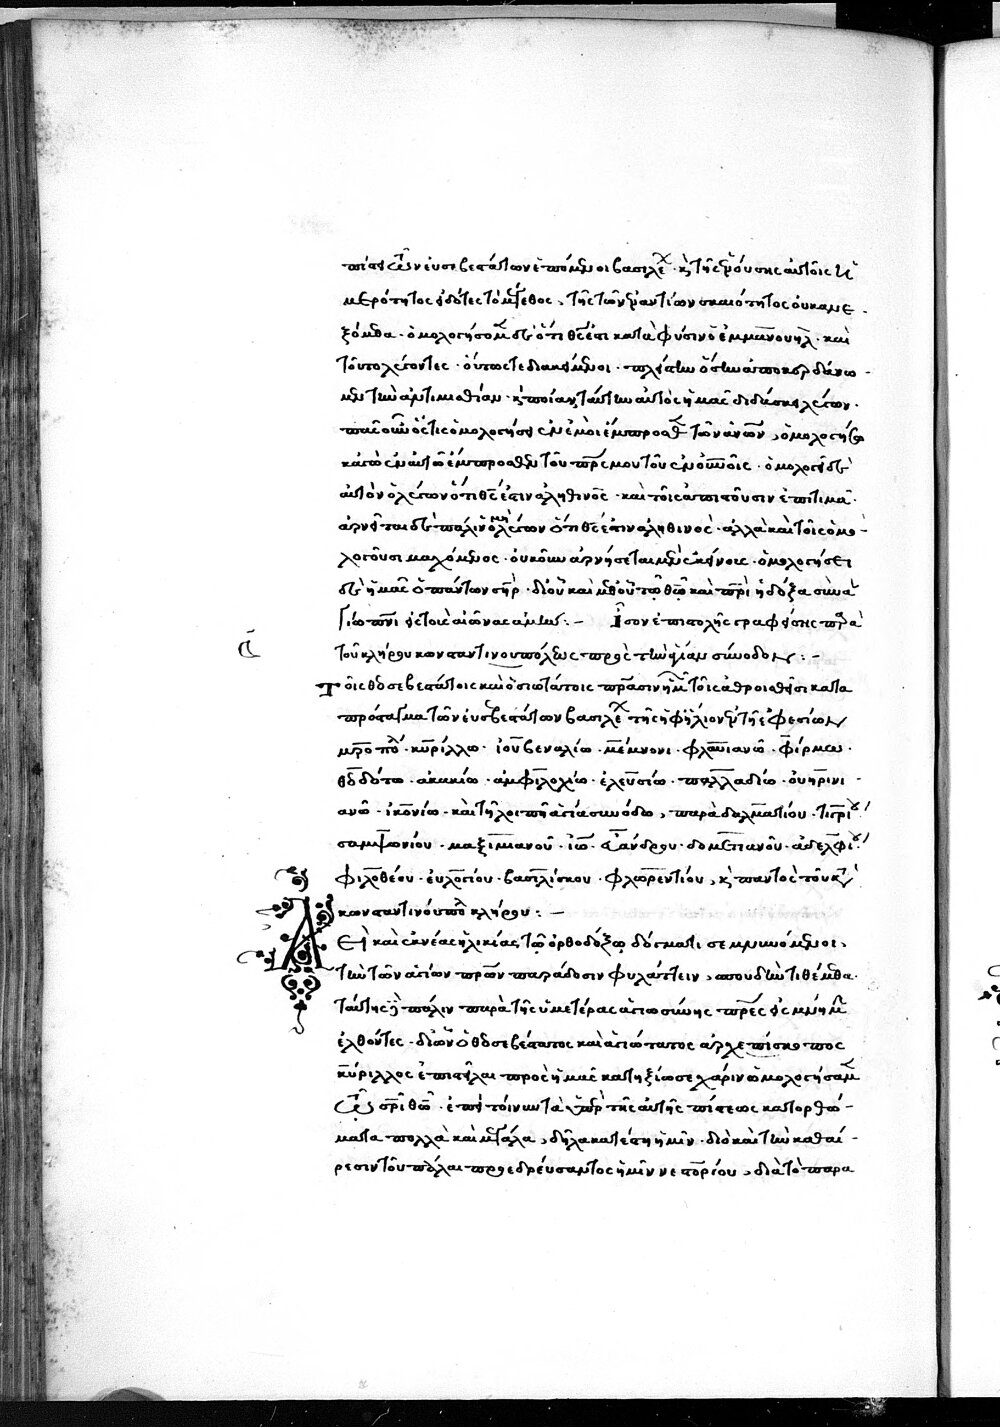 πίστει τῶν εὐσεβεστάτων ἑπόμενοι βασιλέων· καὶ τῆς ἐνούσης αὐτοῖς ἡ
μερότητος εἰδότες τὸ μέγεθος, τῆς τῶν ἐναντίων σκαιότητος οὐκ ἀνε
ξόμεθα· ὁμολογήσομεν δὲ ὅτι θεός ἐστι κατὰ φύσιν ὁ ἐμμανουήλ· καὶ
τοῦτο λέγοντες· οὕτως τε διακείμενοι· πλείστην ὅσην ἀποκερδάνω
μεν τὴν ἀντιμισθίαν· καὶ ποίαν ταύτην αὐτὸς ἡμᾶς διδάσκει λέγων·
πᾶς οὖν ὅστις ὁμολογήσει ἐν ἐμοὶ ἔμπροσθεν τῶν ἀνθρώπων, ὁμολογήσω
κἀγὼ ἐν αὐτῷ ἔμπροσθεν τοῦ πατρός μου τοῦ ἐν οὐρανοῖς· ὁμολογεῖ δὲ
αὐτὸν ὁ λέγων ὅτι θεός ἐστιν ἀληθινός· καὶ τοῖς ἀπιστοῦσιν ἐπιτιμᾷ·
ἀρνεῖται δὲ πάλιν ὁ μὴ λέγων ὅτι θεός ἐστιν ἀληθινός· ἀλλὰ καὶ τοῖς ὁμο
λογοῦσι μαχόμενος· οὐκοῦν ἀρνήσεται μὲν ἐκείνους· ὁμολογήσει
δὲ ἡμᾶς ὁ πάντων σωτήρ· δι' οὗ καὶ μεθ' οὗ τῷ θεῷ καὶ πατρὶ ἡ δόξα σὺν ἁ
γίῳ πνεύματι εἰς τοὺς αἰῶνας ἀμήν:– Ἴσον ἐπιστολῆς γραφείσης παρὰ
τοῦ κλήρου κωνσταντινουπόλεως πρὸς τὴν ἁγίαν σύνοδον:–
Τοῖς θεοσεβεστάτοις καὶ ὁσιωτάτοις πατράσιν ἡμῶν τοῖς ἀθροισθεῖσι κατὰ
πρόσταγμα τῶν εὐσεβεστάτων βασιλέων τῆς ὑφήλιον ἐν τῇ ἐφεσίων
μητροπόλει· κυρίλλω· ἰουβεναλίω· μέμνονι· φλαυιανῶ· φίρμω·
θεοδότω· ἀκακίω· ἀμφιλοχίω· ἐλευσίω· παλλαδίω· οὐηρινι
ανῶ· ἰκονίω· καὶ τῇ λοιπῇ ἁγίᾳ συνόδω, παρὰ δαλματίου· τιγρίου·
σαμψωνίου· μαξιμιανοῦ· ἰω· ἀλεξάνδρου· δομετιανοῦ· ἀδελφίου·
φιλοθέου· εὐλογίου· βασιλίσκου· φλωρεντίου, καὶ παντὸς τοῦ κατὰ
κωνσταντινούπολιν κλήρου:–
Ἀεὶ καὶ ἐκ νέας ἡλικίας, τῷ ὀρθοδόξῳ δόγματι σεμνυνόμενοι,
τὴν τῶν ἁγίων πατέρων παράδοσιν φυλάττειν, σπουδὴν τιθέμεθα·
ταύτης δὲ πάλιν παρὰ τῆς ὑμετέρας ἁγιωσύνης πατέρες εἰς μνήμην
ἐλθόντες· δι' ὧν ὁ θεοσεβέστατος καὶ ἁγιώτατος ἀρχιεπίσκοπος
κύριλλος ἐπιστεῖλαι πρὸς ἡμᾶς κατηξίωσε χάριν ὡμολογήσαμεν
τῷ σωτῆρι θεῷ· ἐπεὶ τοίνυν τὰ ὑπὲρ τῆς αὐτῆς πίστεως κατορθώ
ματα πολλὰ καὶ μεγάλα, δῆλα κατέστη ἡμῖν· διὸ καὶ τὴν καθαί
ρεσιν τοῦ πάλαι προεδρεύσαντος ἡμῖν νεστορίου, διὰ τὸ παρα